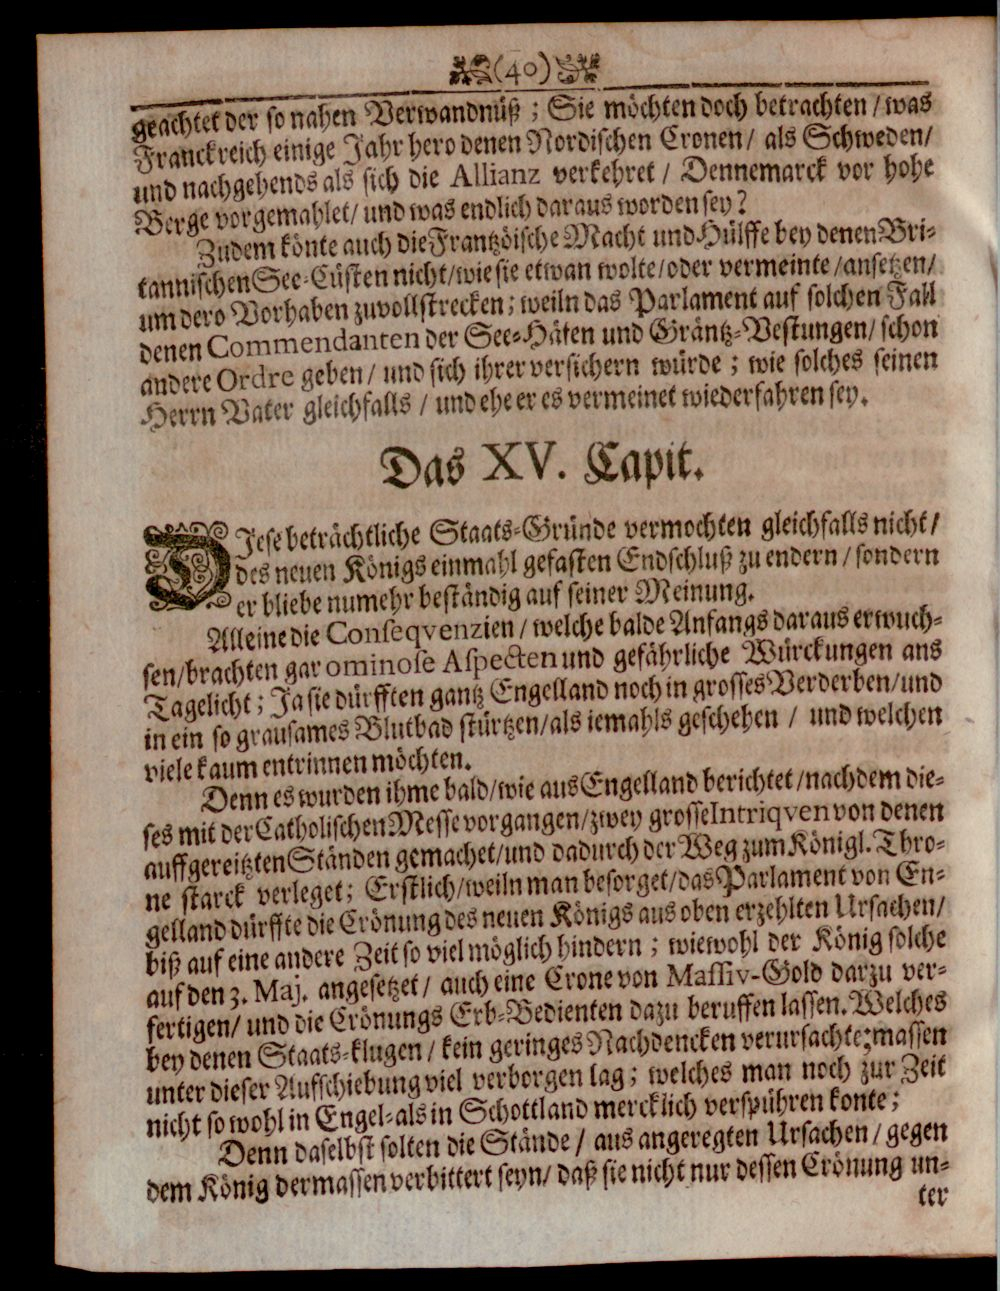 (40)
geachtet der so nahen Verwandnüß ; Sie möchten doch betrachten / was
Franckreich einige Jahr hero denen Nordischen Cronen / als Schweden /
und nachgehends als sich die Allianz verkehret / Dennemarck vor hohe
Berge vorgemahlet / und was endlich daraus worden sey?
Zudem könte auch die Frantzöische Macht und Hülffe bey denen Bri-
tannischen See-Cüsten nicht / wie sie etwan wolte / oder vermeinte / ansetzen /
um dero Vorhaben zuvollstrecken; weiln das Parlament auf solchen Fall
denen Commendanten der See-Häfen und Gräntz-Vestungen / schon
andere Ordre geben / und sich ihrer versichern würde ; wie solches seinen
Herrn Vater gleichfalls / und ehe er es vermeinet wiederfahren sey.
Das XV. Capit.
DJese beträchtliche Staats-Gründe vermochten gleichfalls nicht /
des neuen Königs einmahl gefasten Endschluß zu endern / sondern
er bliebe numehr beständig auf seiner Meinung.
Alleine die Conseqvenzien / welche balde Anfangs daraus erwuch-
sen / brachten gar ominose Aspecten und gefährliche Würckungen ans
Tagelicht ; Ja sie dürfften gantz Engelland noch in grosses Verderben / und
in ein so grausames Blutbad stürtzen / als iemahls geschehen / und welchen
viele kaum entrinnen möchten.
Denn es wurden ihme bald / wie aus Engelland berichtet / nachdem die-
ses mit der Catholischen Messe vorgangen / zwey grosse Intriqven von denen
auffgereitzten Ständen gemachet / und dadurch der Weg zum Königl. Thro-
ne starck verleget ; Erstlich / weiln man besorget / das Parlament von En-
gelland dürffte die Crönung des neuen Königs aus oben erzehlten Ursachen /
biß auf eine andere Zeit so viel möglich hindern ; wiewohl der König solche
auf den 3. Maj. angesetzet / auch eine Crone von Massiv-Gold darzu ver-
fertigen / und die Crönungs Erb-Bedienten dazu beruffen lassen. Welches
bey denen Staats-klugen / kein geringes Nachdencken verursachte; massen
unter dieser Aufschiebung viel verborgen lag ; welches man noch zur Zeit
nicht so wohl in Engel- als in Schottland mercklich verspühren konte ;
Denn daselbst solten die Stände / aus angeregten Ursachen / gegen
dem König dermassen verbittert seyn / daß sie nicht nur dessen Crönung un-
ter